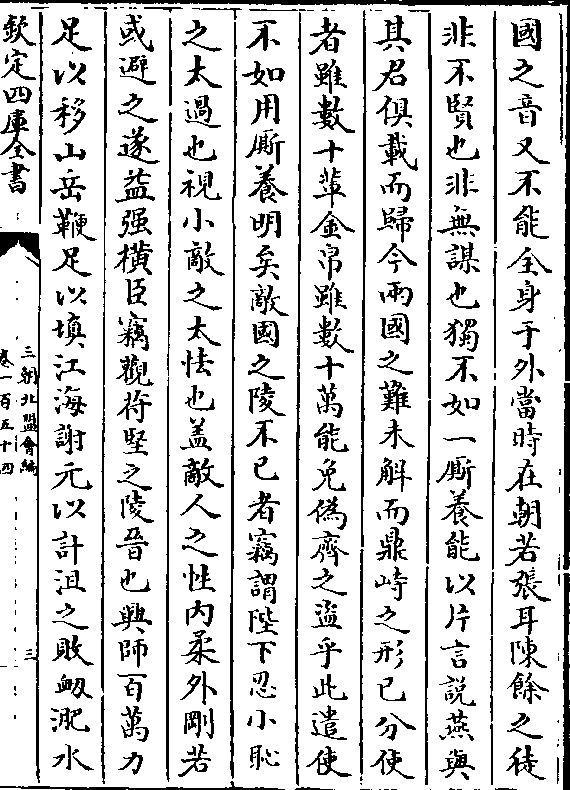 國之音又不能全身于外當時在朝若張耳陳餘之徒
非不賢也非無謀也獨不如一厮養能以片言說燕與
其君俱載而歸今兩國之難未解而鼎峙之形已分使
者雖數十輩金帛雖數十萬能免偽齊之盜乎此遣使
不如用厮養明矣敵國之陵不已者竊謂陛下忍小恥
之太過也視小敵之太怯也盖敵人之性内柔外剛若
或避之遂益强横臣竊觀苻堅之陵晉也興師百萬力
足以移山岳鞭足以填江海謝元以計沮之敗衂淝水
欽定四庫全書
三朝北盟會編
卷一百五十四
三